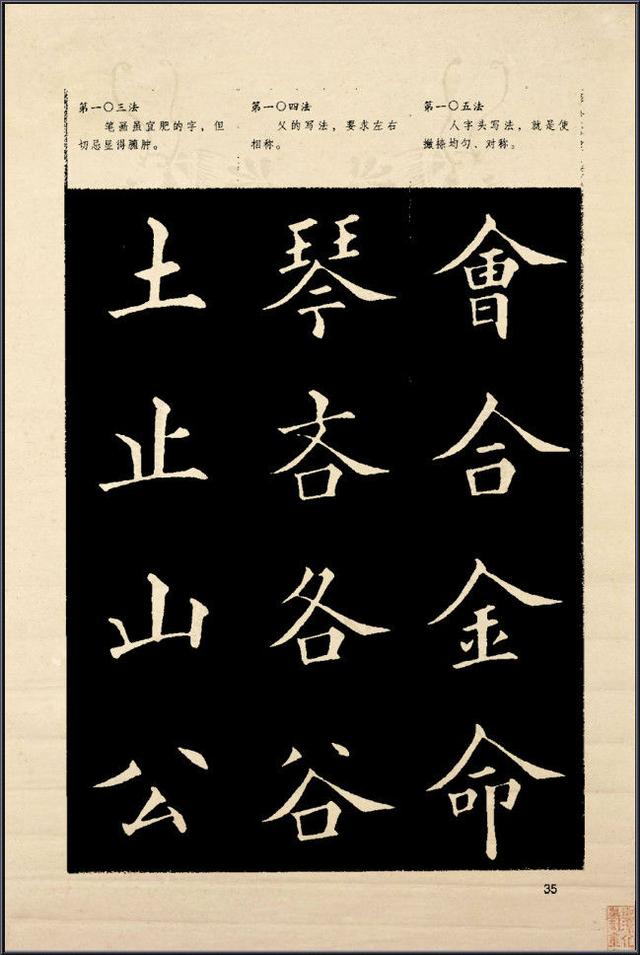 第一〇五法
人字头写法，就是使
撇捺均匀、对称。
第一〇四法
父的写法，要求左右
相称。
第一〇三法
笔画虽宜肥的字，但
切忌显得臃肿。
會合金命
琴吝各谷
土止山公
35